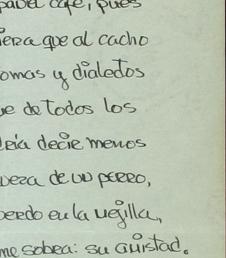 papel café, pues
iera que al cacho
omas y dialetos
ue de todos los
ería decir menos
veza de un perro,
perdo en la mejilla,
me sobra: su amistad.